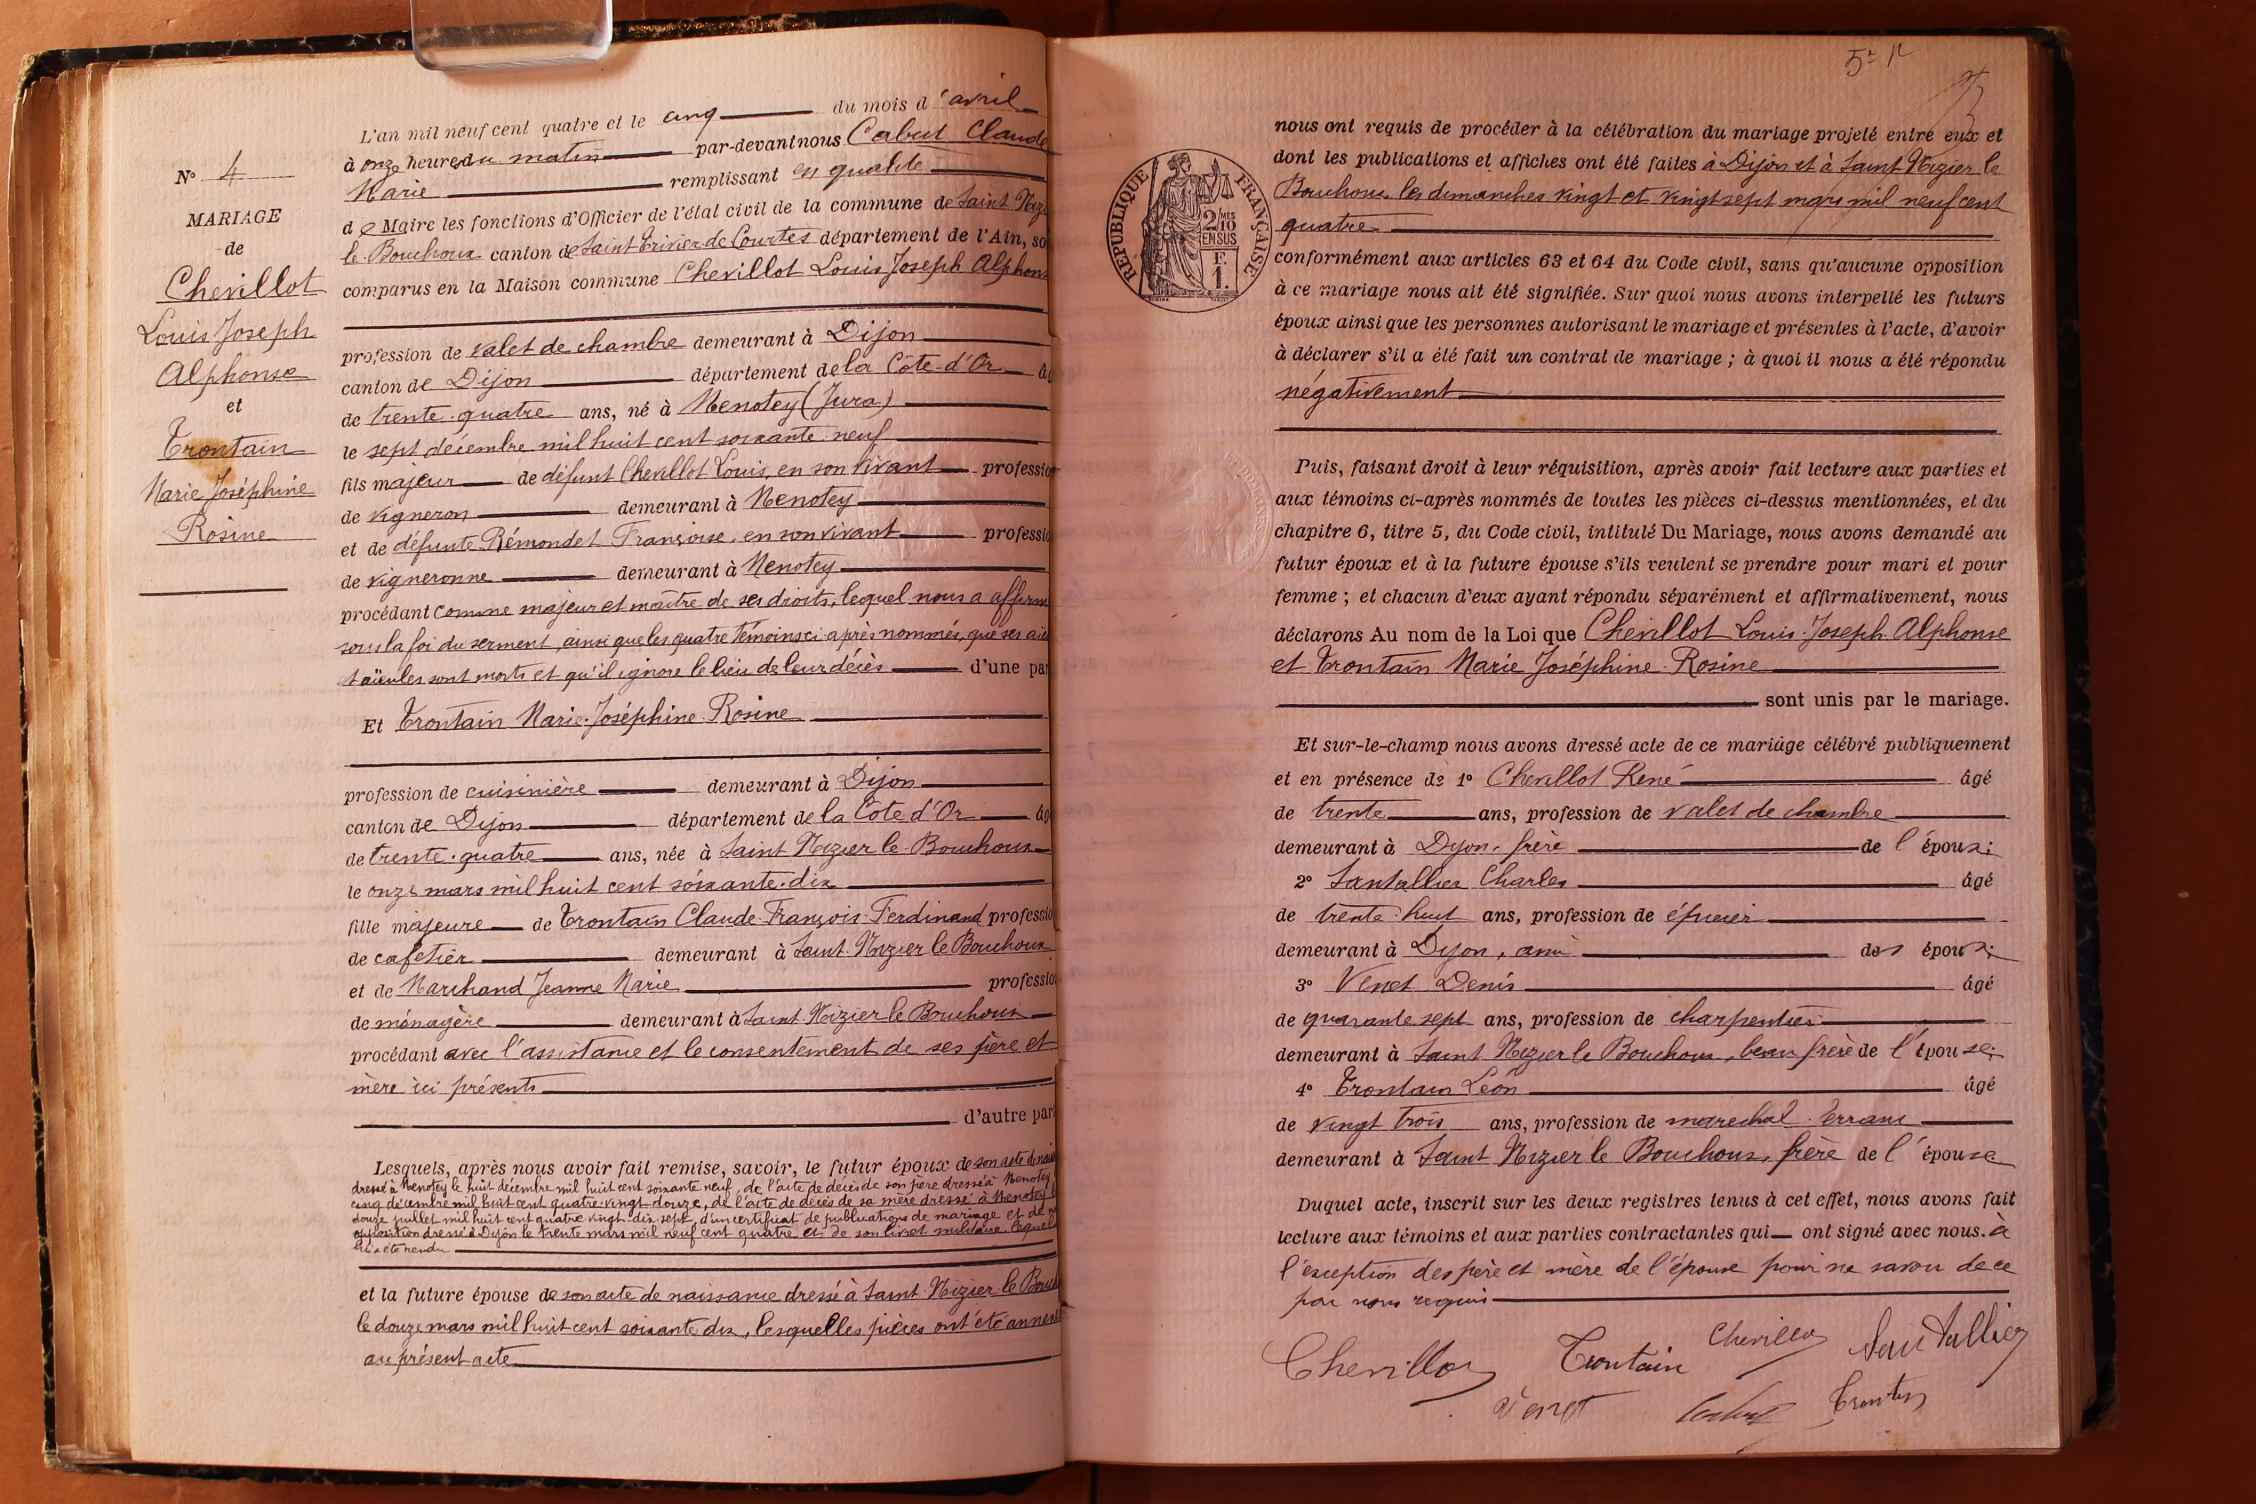 L'an mil neuf cent quatre et le cinq du mois d'avril
à onze heures du matin par-devant nous Cabut Claude
Marie remplissant en qualité
de Maire les fonctions d'Officier de l'état civil de la commune de Saint Nizi
le Bouchoux canton de Saint Trivier de Courtes département de l'Ain, so
comparus en la Maison commune Chevillot Louis Joseph Alphons
profession de valet de chambre demeurant à Dijon
canton de Dijon département de la Côte-d'Or âg
de trente-quatre ans, né à Menotey (Jura)
le sept décembre mil huit cent soixante neuf
fils majeur de défunt Chevillot Louis, en son vivant profession
de vigneron demeurant à Menotey
et de défunte Rémondet Françoise, en son vivant professio
de vigneronne demeurant à Menotey
procédant comme majeur et maître de ses droits, lequel nous a affirm
sous la foi du serment, ainsi que les quatre témoins ci après nommés, que ses aïe
taïeules sont morts et qu'il ignore le lieu de leur décès d'une par
Et Trontain Marie Joséphine Rosine
profession de cuisinière demeurant à Dijon
canton de Dijon département de la Côte d'Or âg
de trente-quatre ans, née à Saint Nizier le Bouchoux
le onze mars mil huit cent soixante-dix
fille majeure de Trontain Claude François Ferdinand professio
de cafetier demeurant à Saint-Nizier le Bouchoux
et de Marchand Jeanne Marie professio
de ménagère demeurant à Saint-Nizier le Bouchoux
procédant avec l'assistance et le consentement de ses père et
mère ici présents
d'autre par
Lesquels, après nous avoir fait remise, savoir, le futur époux de son acte de nais
dressé à Menotey le huit décembre mil huit cent soixante neuf, de l'acte de décès de son père dressé à Menotey
cinq décembre mil huit cent quatre vingt douze, de l'acte de décès de sa mère dressé à Menotey l
douze juillet mil huit cent quatre vingt dix sept, d'un certificat de publications de mariage et de n
opposition dressé à Dijon le trente mars mil neuf cent quatre et de son livret militaire lequel
lui a été rendu
et la future épouse de son acte de naissance dressé à Saint-Nizier le Bouch
le douze mars mil huit cent soixante dix, lesquelles pièces ont été annex
au présent acte
N° 4
MARIAGE
de
Chevillot
Louis Joseph
Alphonse
et
Trontain
Marie Joséphine
Rosine
nous ont requis de procéder à la célébration du mariage projeté entre eux et
dont les publications et affiches ont été faites à Dijon et à Saint Nizier le
Bouchoux les dimanches vingt et vingt sept mars mil neuf cent
quatre
conformément aux articles 63 et 64 du Code civil, sans qu'aucune opposition
à ce mariage nous ait été signifiée. Sur quoi nous avons interpellé les futurs
époux ainsi que les personnes autorisant le mariage et présentes à l'acte, d'avoir
à déclarer s'il a été fait un contrat de mariage ; à quoi il nous a été répondu
négativement
Puis, faisant droit à leur réquisition, après avoir fait lecture aux parties et
aux témoins ci-après nommés de toutes les pièces ci-dessus mentionnées, et du
chapitre 6, titre 5, du Code civil, intitulé Du Mariage, nous avons demandé au
futur époux et à la future épouse s'ils veulent se prendre pour mari et pour
femme ; et chacun d'eux ayant répondu séparément et affirmativement, nous
déclarons Au nom de la Loi que Chevillot Louis-Joseph-Alphonse
et Trontain Marie Joséphine-Rosine
sont unis par le mariage.
Et sur-le-champ nous avons dressé acte de ce mariage célébré publiquement
et en présence de 1° Chevillot René âgé
de trente ans, profession de valet de chambre
demeurant à Dijon, frère de l'époux;
2° Santallier Charles âgé
de trente-huit ans, profession de épicier
demeurant à Dijon, ami des époux;
3° Venet Denis âgé
de quarante sept ans, profession de charpentier
demeurant à Saint Nizier le Bouchoux, beau frère de l'épouse;
4° Trontain Léon âgé
de vingt trois ans, profession de marechal-ferrant
demeurant à Saint Nizier le Bouchoux, frère de l'épouse
Duquel acte, inscrit sur les deux registres tenus à cet effet, nous avons fait
lecture aux témoins et aux parties contractantes qui ont signé avec nous. à
l'exception des père et mère de l'épouse pour ne savoir de ce
par nous requis
Chevillot Trontain Chevillot Santallier
Venet Cabut Trontain
RÉPUBLIQUE FRANÇAISE
2/10 MES
EN SUS
F.
1.